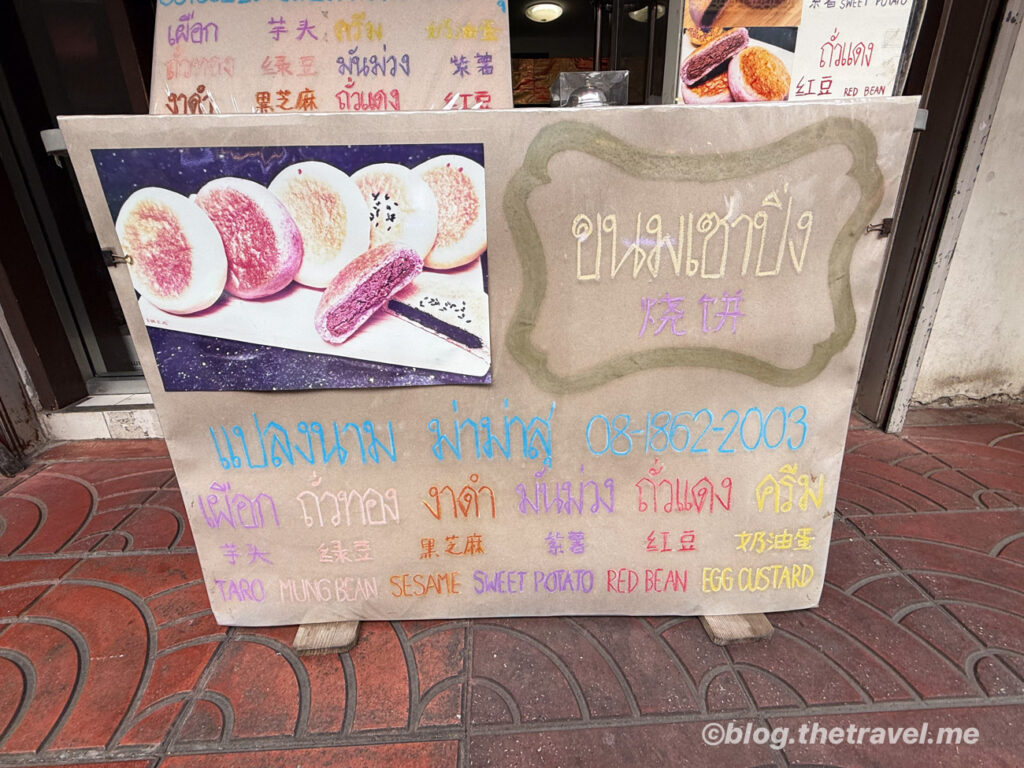 เผือก 芋头 ครีม 奶油蛋
ถั่วทอง 绿豆 มันม่วง 紫薯
งาดำ 黑芝麻 ถั่วแดง 红豆
紫薯 SWEET POTATO
ถั่วแดง
红豆 RED BEAN
ขนมเซาปิ่ง
烧饼
แปลงนาม ม่าม่าสุ 08-1862-2003
เผือก ถั่วทอง งาดำ มันม่วง ถั่วแดง ครีม
芋头 绿豆 黑芝麻 紫薯 红豆 奶油蛋
TARO MUNG BEAN SESAME SWEET POTATO RED BEAN EGG CUSTARD
©blog.thetravel.me